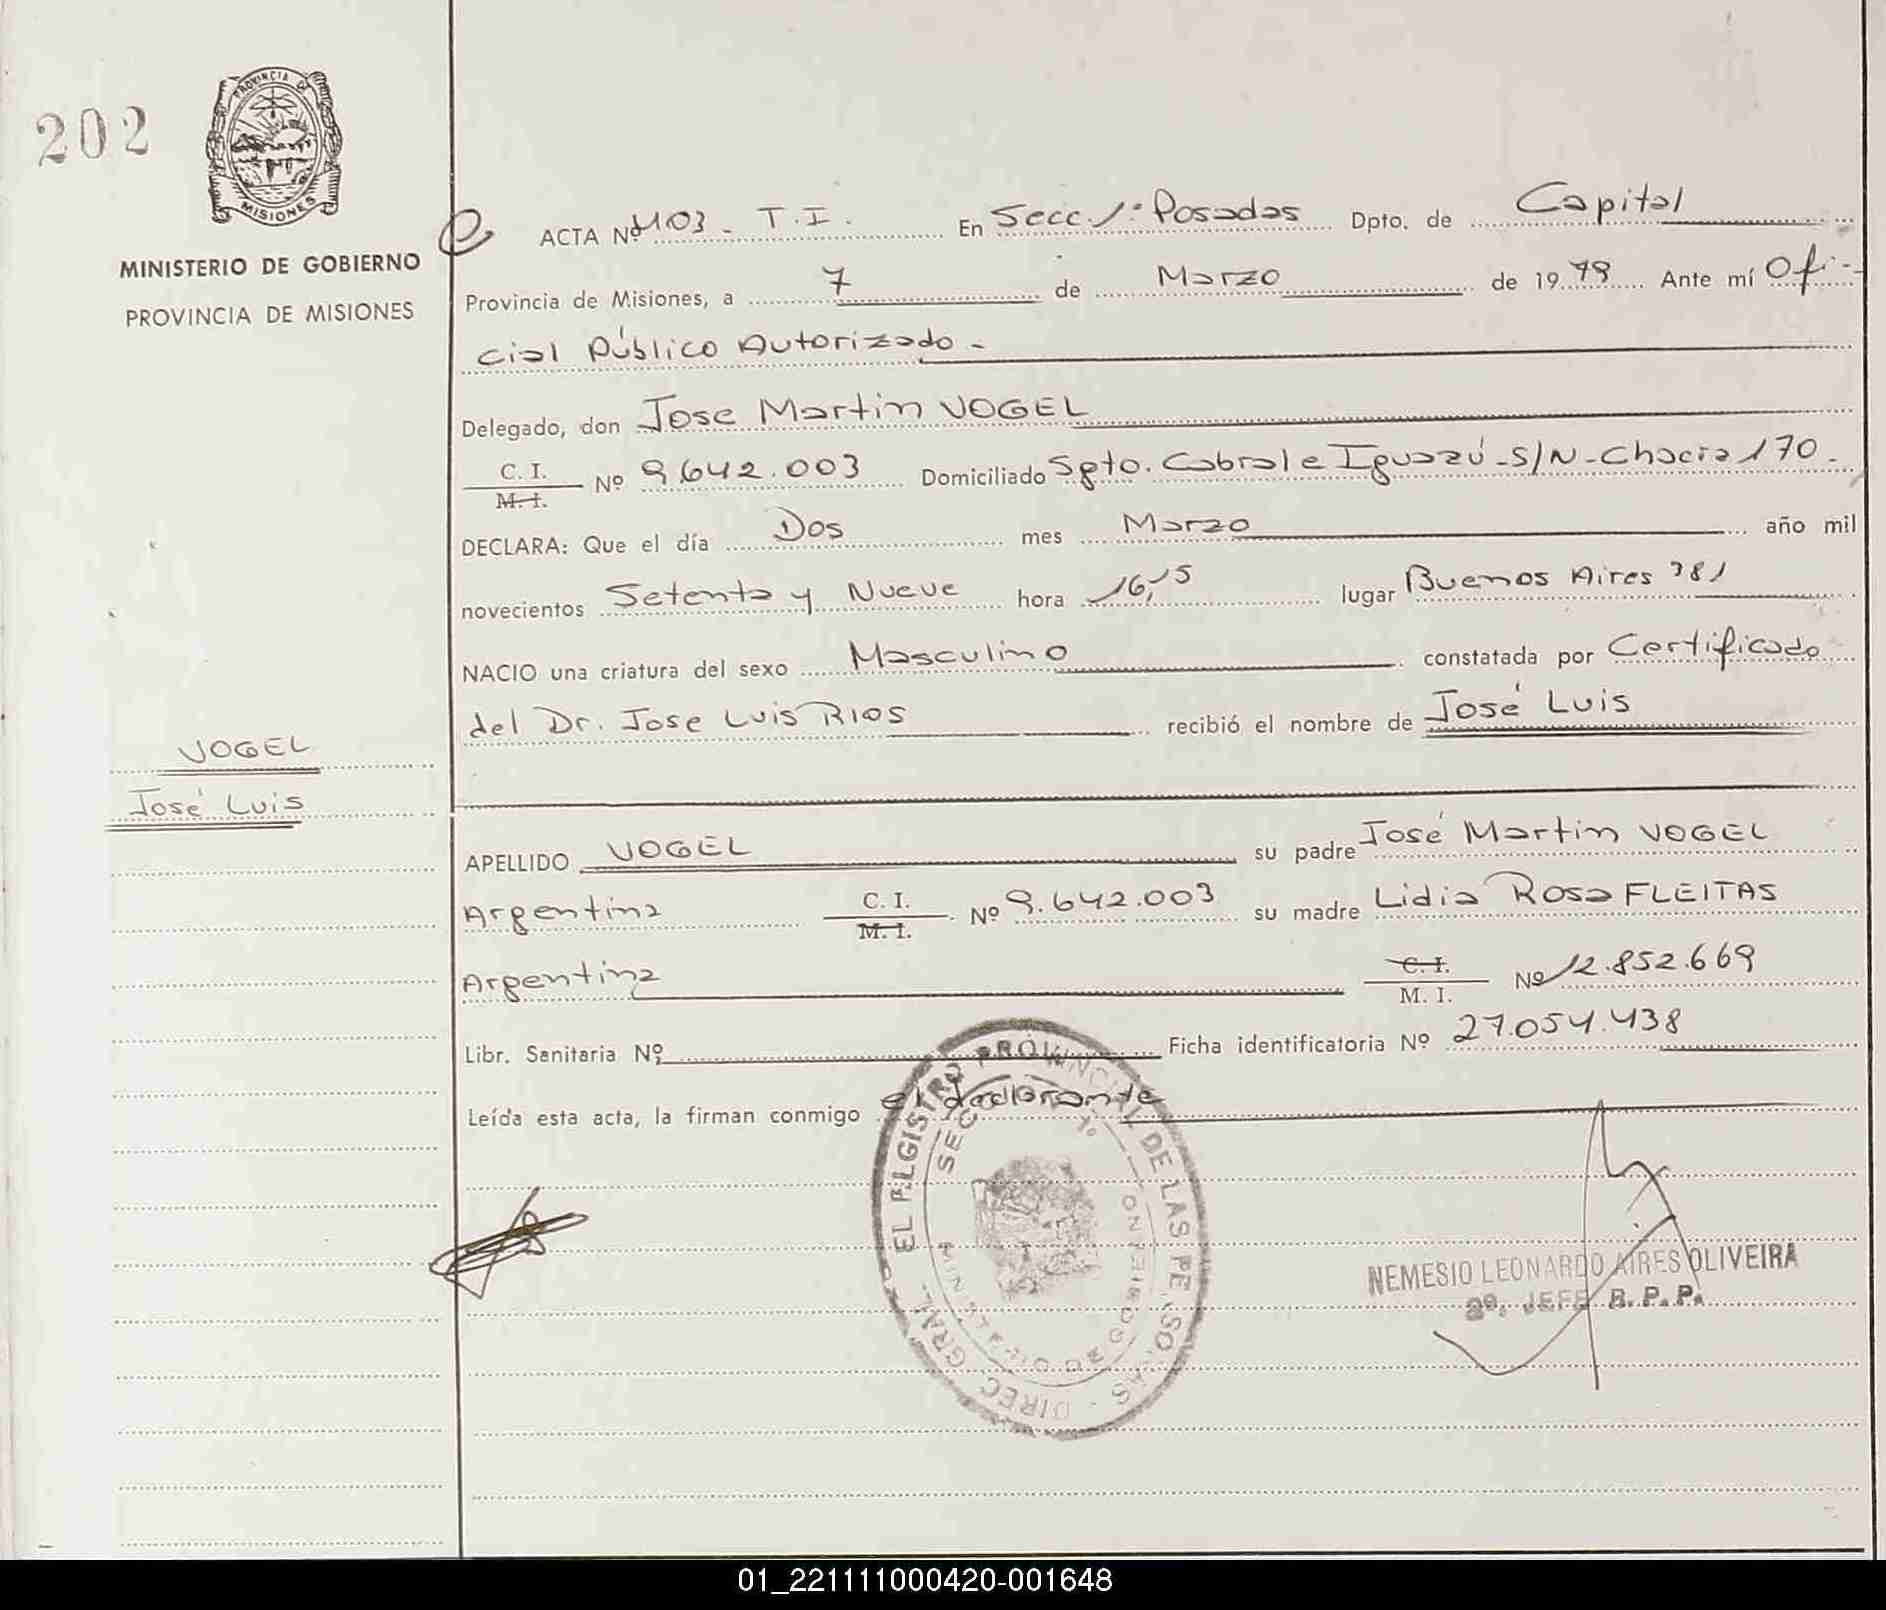 202
PROVINCIA DE
MISIONES
MINISTERIO DE GOBIERNO
PROVINCIA DE MISIONES
ACTA Nº 1103 - T.I. En Secc. 1ª Posadas Dpto. de Capital
Provincia de Misiones, a 7 de Marzo de 1979 Ante mí Ofi-
cial Público Autorizado -
Delegado, don Jose Martin VOGEL
C. I. M. I. Nº 9.642.003 Domiciliado Sgto. Cabral e Iguazú - S/N - Chacra 170 -
DECLARA: Que el día Dos mes Marzo año mil
novecientos Setenta y Nueve hora 16,15 lugar Buenos Aires 781
NACIO una criatura del sexo Masculino constatada por Certificado
del Dr. Jose Luis RIOS recibió el nombre de José Luis
VOGEL
José Luis
APELLIDO VOGEL su padre José Martin VOGEL
Argentina C. I. M. I. Nº 9.642.003 su madre Lidia Rosa FLEITAS
Argentina C. I. M. I. Nº 12.852.669
Libr. Sanitaria Nº Ficha identificatoria Nº 27.054.438
Leída esta acta, la firman conmigo el declarante
DIREC. GRAL. DEL REGISTRO PROVINCIAL DE LAS PERSONAS
SECC. 1º
MINISTERIO DE GOBIERNO
NEMESIO LEONARDO AIRES OLIVEIRA
2º. JEFE R. P. P.
01_221111000420-001648